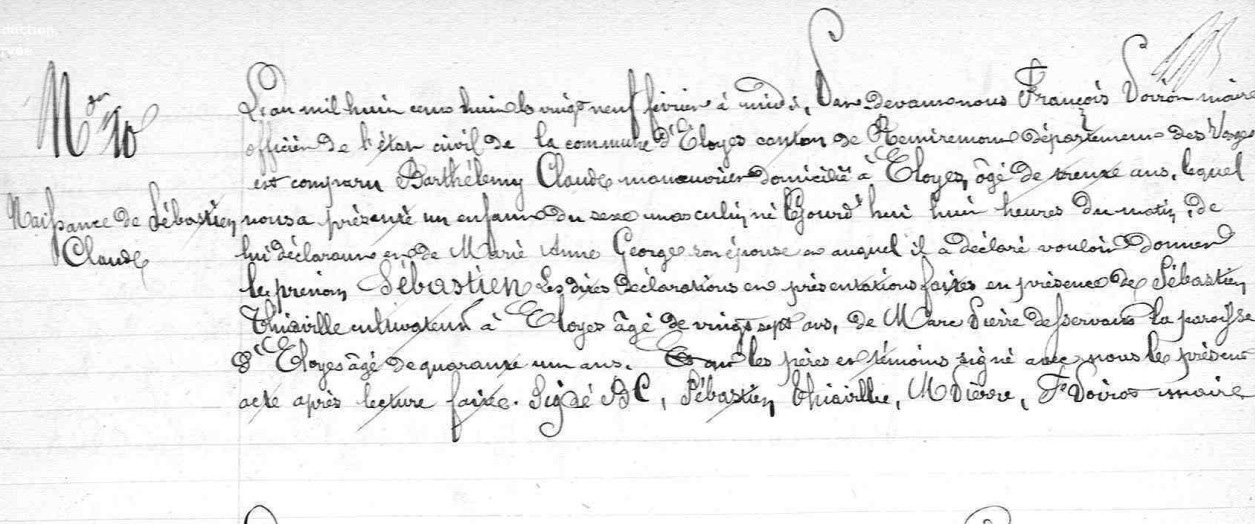 N° 10
Naissance de Sébastien
Claude
L'an mil huit cent huit le vingt neuf février à midi, Par devant nous François Voirin maire
officier de l'état civil de la commune d'Eloyes canton de Remiremont département des Vosges
est comparu Barthélemy Claude manouvrier domicilié à Eloyes, âgé de trente ans, lequel
nous a présenté un enfant du sexe masculin, né aujourd'hui huit heures du matin, de
lui déclarant et de Marie Anne George son épouse et auquel il a déclaré vouloir donner
le prénom Sébastien Les dites déclarations et présentations faites en présence de Sébastien
Thiaville cultivateur à Eloyes âgé de vingt sept ans, de Marc Pierre desservant la paroisse
d'Eloyes âgé de quarante un ans. les pères et témoins signé avec nous le présent
acte après lecture faite. Signé B C, Sébastien Thiaville, M Pierre, F Voirot maire